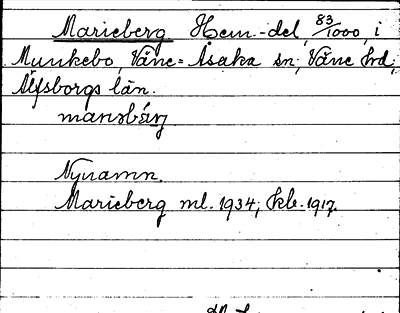 Marieberg Hem.-del, 83/1000, i
Munkebo, Väne-Åsaka sn, Väne hd,
Älfsborgs län.
Nynamn.
Marieberg ml. 1934, kb. 1917.